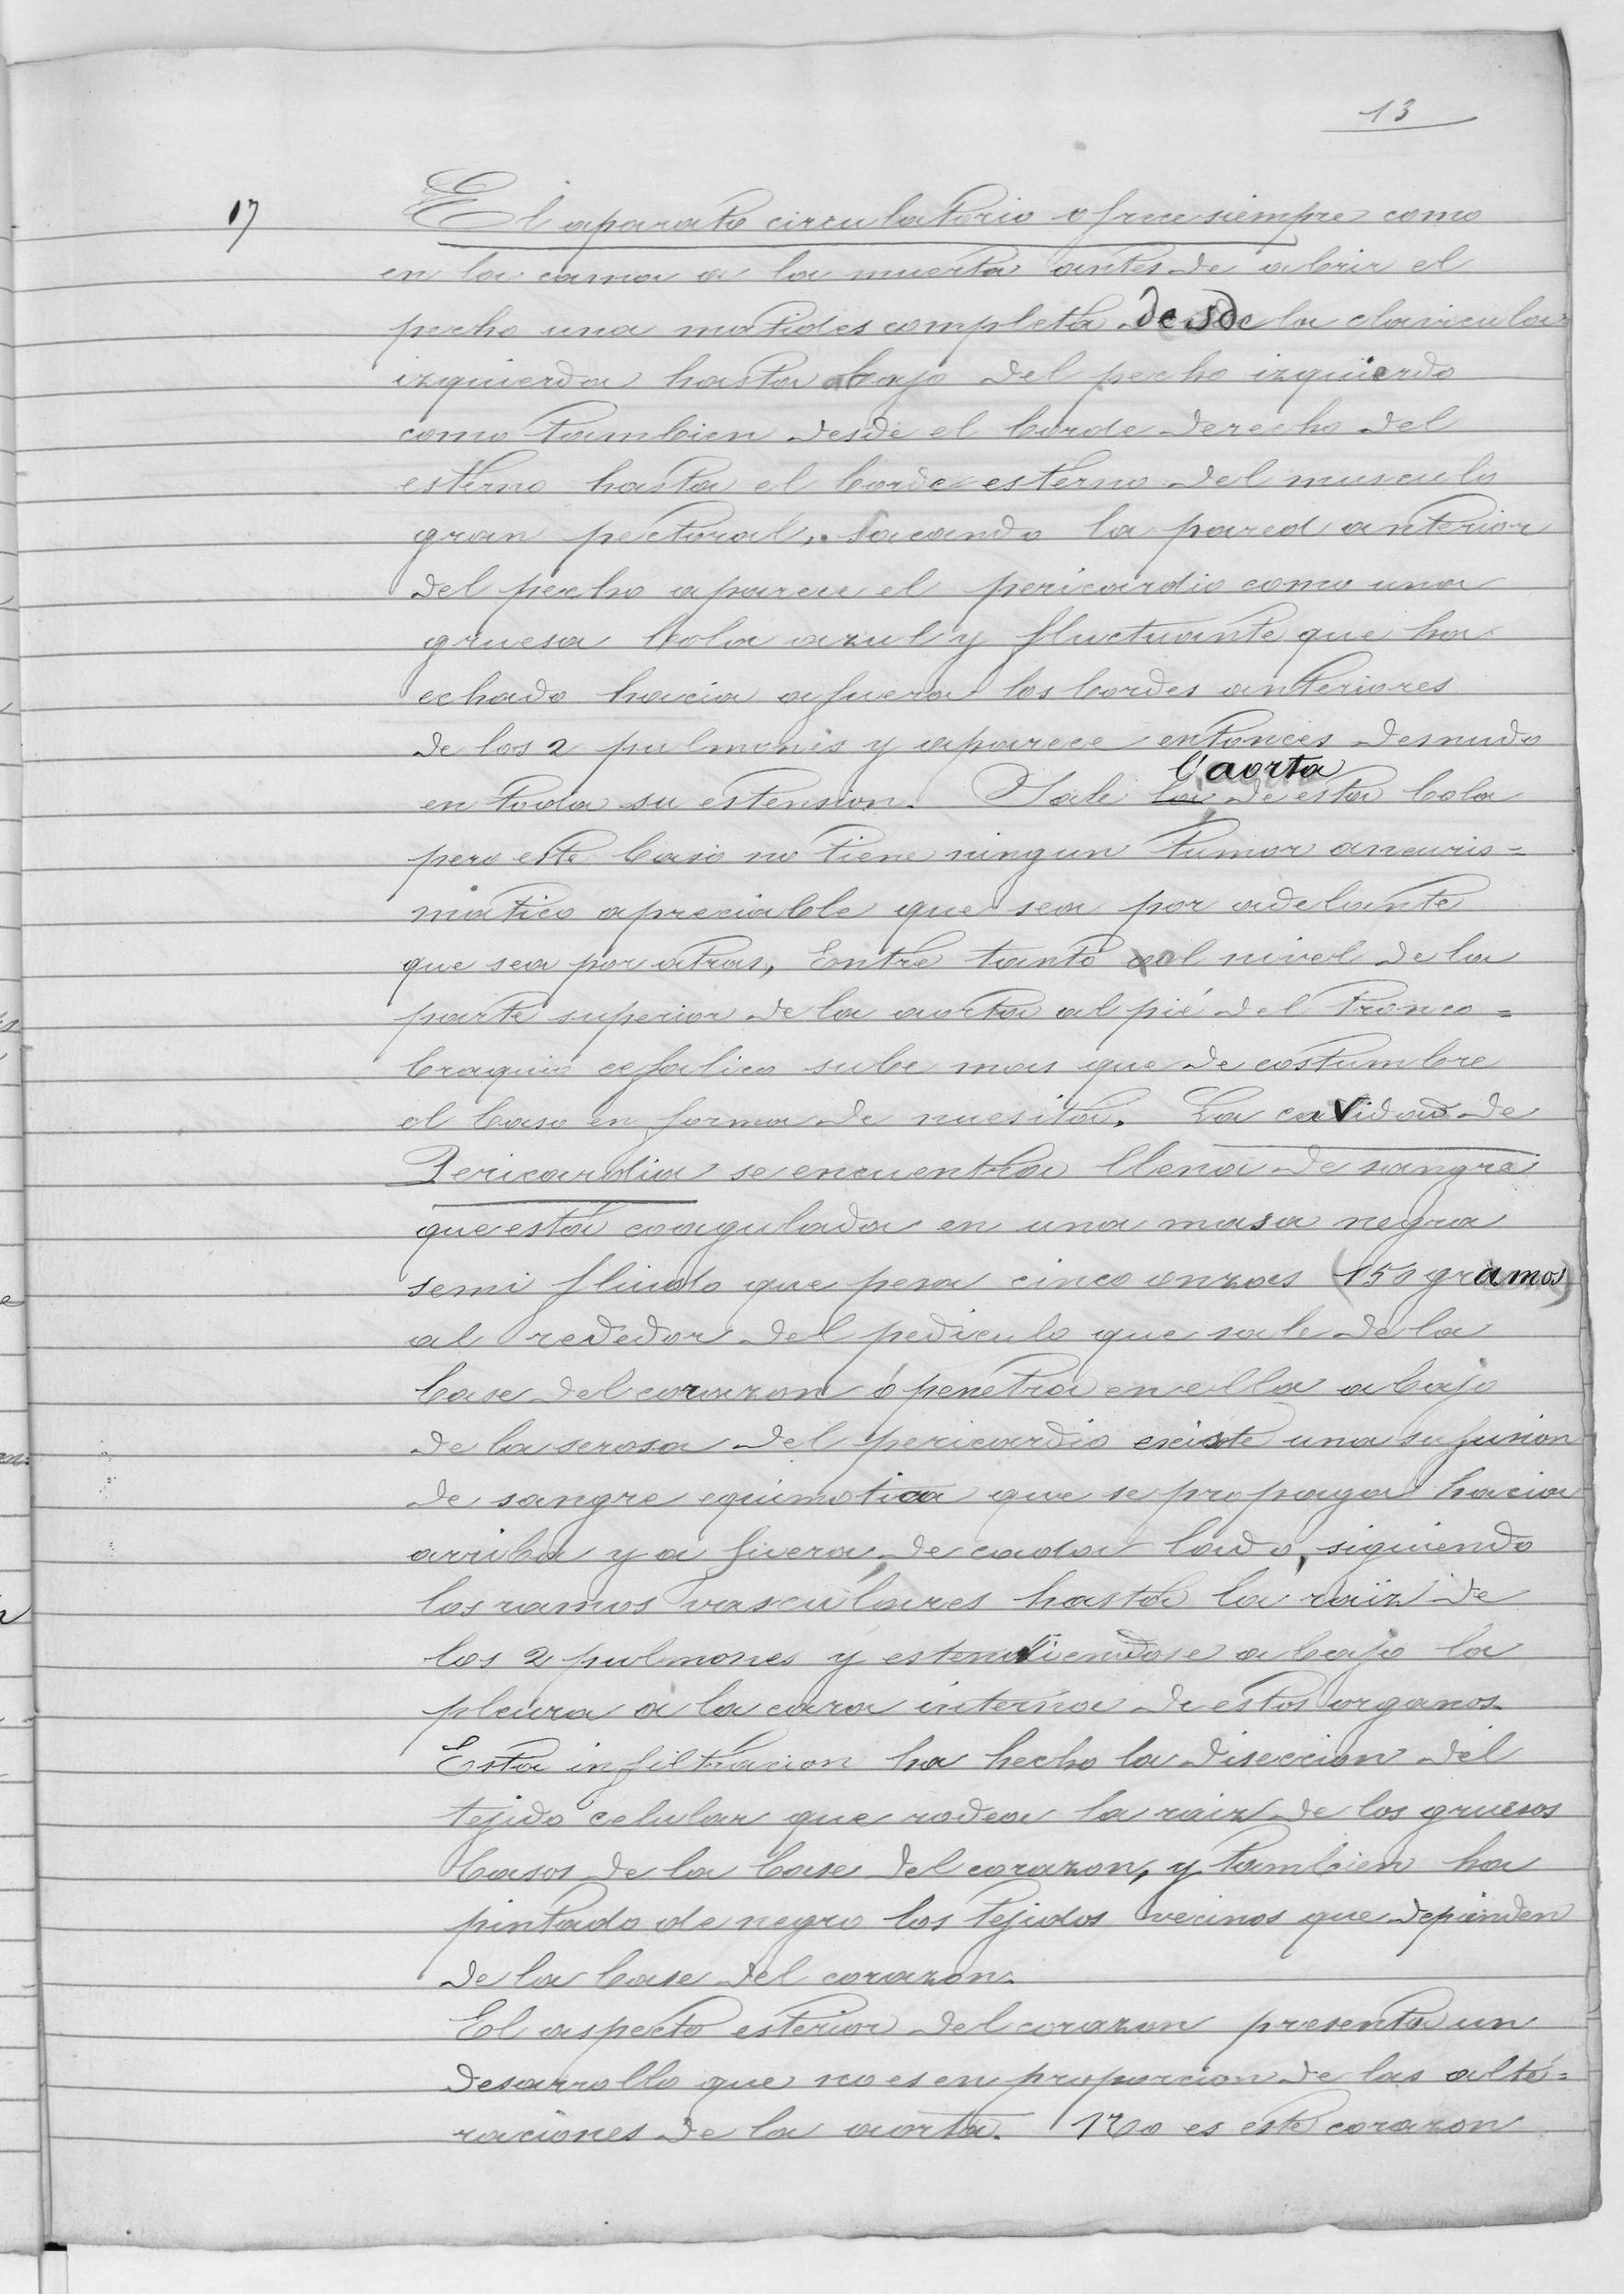 13
17
El aparato circulatorio ofrece siempre como
en la cama a la muerta antes de abrir el
pecho una matides completa desde la clavicula
izquierda hasta abajo del pecho izquierdo
como tambien desde el borde derecho del
esterno hasta el borde esterno del musculo
gran pectoral, sacando la pared anterior
del pecho aparece el pericardio como una
gruesa bola azul y fluctuante que ha
echado hacia afuera los bordes anteriores
de los 2 pulmones y aparece entonces desnudo
l'aorta
en toda su estension. Sale la de esta bola
pero este baso no tiene ningun tumor aneuris=
matico apreciable que sea por adelante
que sea por atras, Entre tanto al nivel de la
parte superior de la aorta al pié del tronco=
braquio cefalico sube mas que de costumbre
el baso en forma de nuesita. La cavidad de
Pericardia se encuentra llena de sangre
que está coagulada en una masa negra
semi fluido que pesa cinco onzas (150 gramos)
al rededor del pediculo que sale de la
base del corazon ó penetra en ella abajo
de la serosa del pericardio existe una sufusion
de sangre equimotica que se propaga hacia
arriba y a fuera de cada lado, siguiendo
los ramos vasculares hasta la raiz de
los 2 pulmones y estendiendose abajo la
pleura a la cara interna de estos organos.
Esta infiltracion ha hecho la diseccion del
tejido celular que rodea la raiz de los gruesos
basos de la base del corazon, y tambien ha
pintado de negro los tejidos vecinos que depienden
de la base del corazon.
El aspecto esterior del corazon presenta un
desarrollo que no es en proporcion de las alté=
raciones de la aorta. No es este corazon